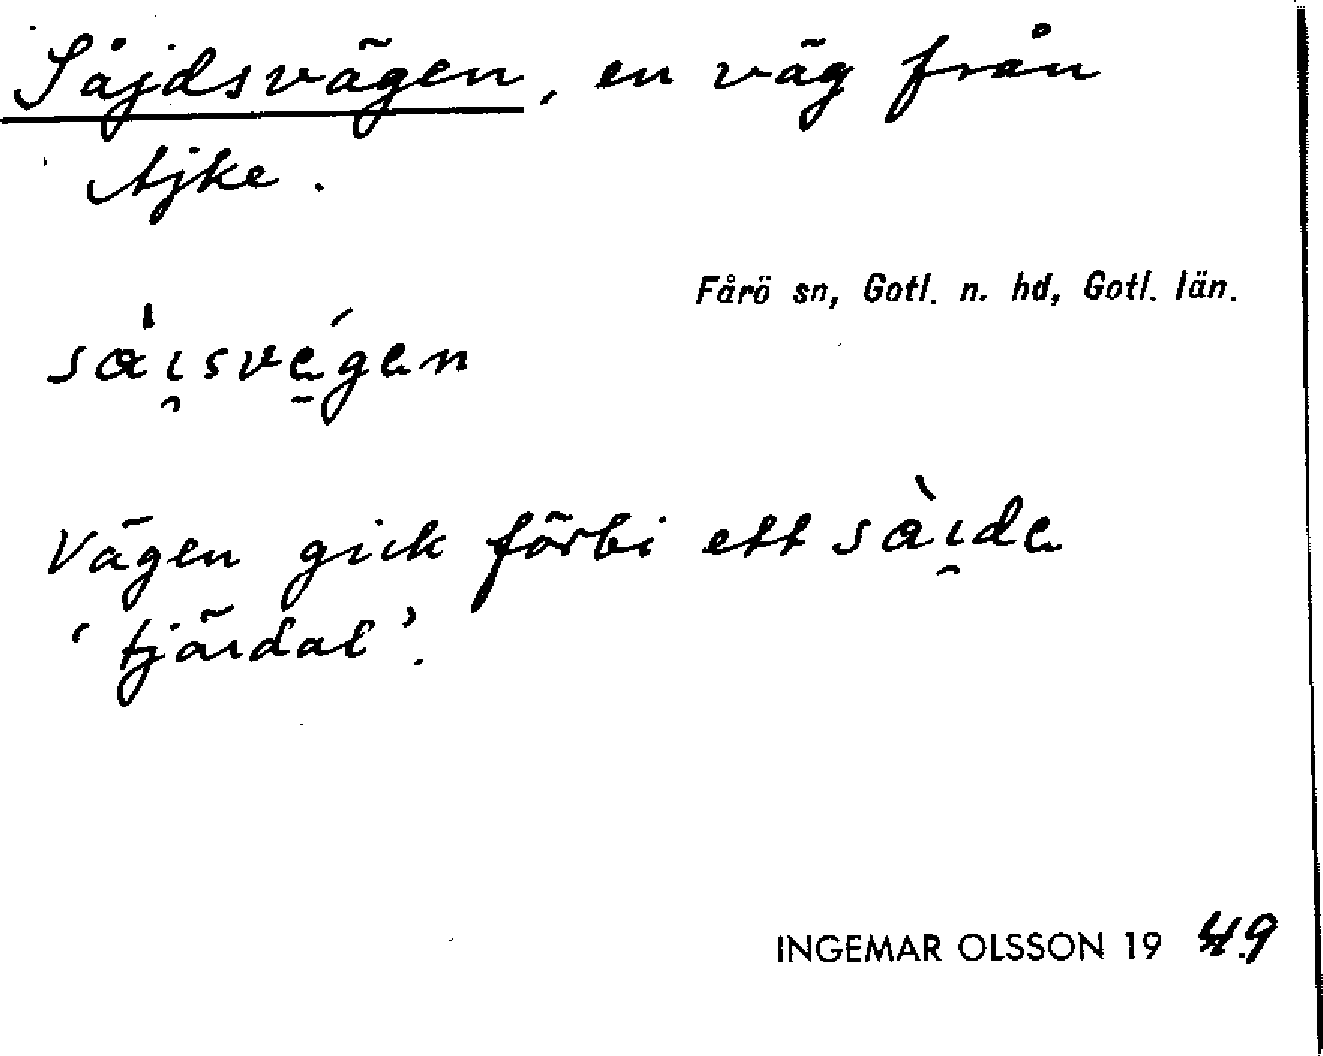 Såjdsvägen, en väg från
Ajke.
Fårö sn, Gotl. n. hd, Gotl. län.
sα̍ı̯své̱gɐn
Vägen gick förbi ett sὰı̯dɐ
‘tjärdal’.
INGEMAR OLSSON 19 49